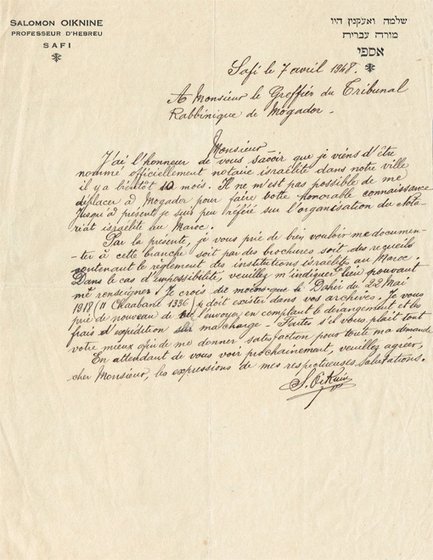 SALOMON OIKNINE
PROFESSEUR D'HEBREU
SAFI
שלמה ואעקנין הי״ו
מורה עברית
אספי
Safi le 7 avril 1948.
A Monsieur le Greffier du Tribunal
Rabbinique de Mogador.
Monsieur
J'ai l'honneur de vous savoir que je viens d'être
nommé officiellement notaire israélite dans notre ville
il y a bientôt 10 mois. Il ne m'est pas possible de me
déplacer à Mogador pour faire votre honorable connaissance
Jusqu'à présent je suis peu sur l'organisation du Nota-
riat israélite au Maroc.
Par la présente, je vous prie de bien vouloir me documen-
ter à cette branche soit par des brochures soit des recueils
contenant le règlement des institutions israélite au Maroc.
Dans le cas d'impossibilité, veuillez m'indiquer lieu pouvant
me renseigner. Je crois du moins que le Dahir du 22 Mai
1918 (11 Chaabane 1336) doit exister dans vos archives. Je vous
prie de nouveau de l'envoyer en comptant le dérangement et les
frais d'expédition sur ma charge. Faites s'il vous plait tout
votre mieux afin de me donner satisfaction pour toute ma demande
En attendant de vous voir prochainement, veuillez agréer,
cher Monsieur, les expressions de mes respectueuses salutations.
S. Oiknine